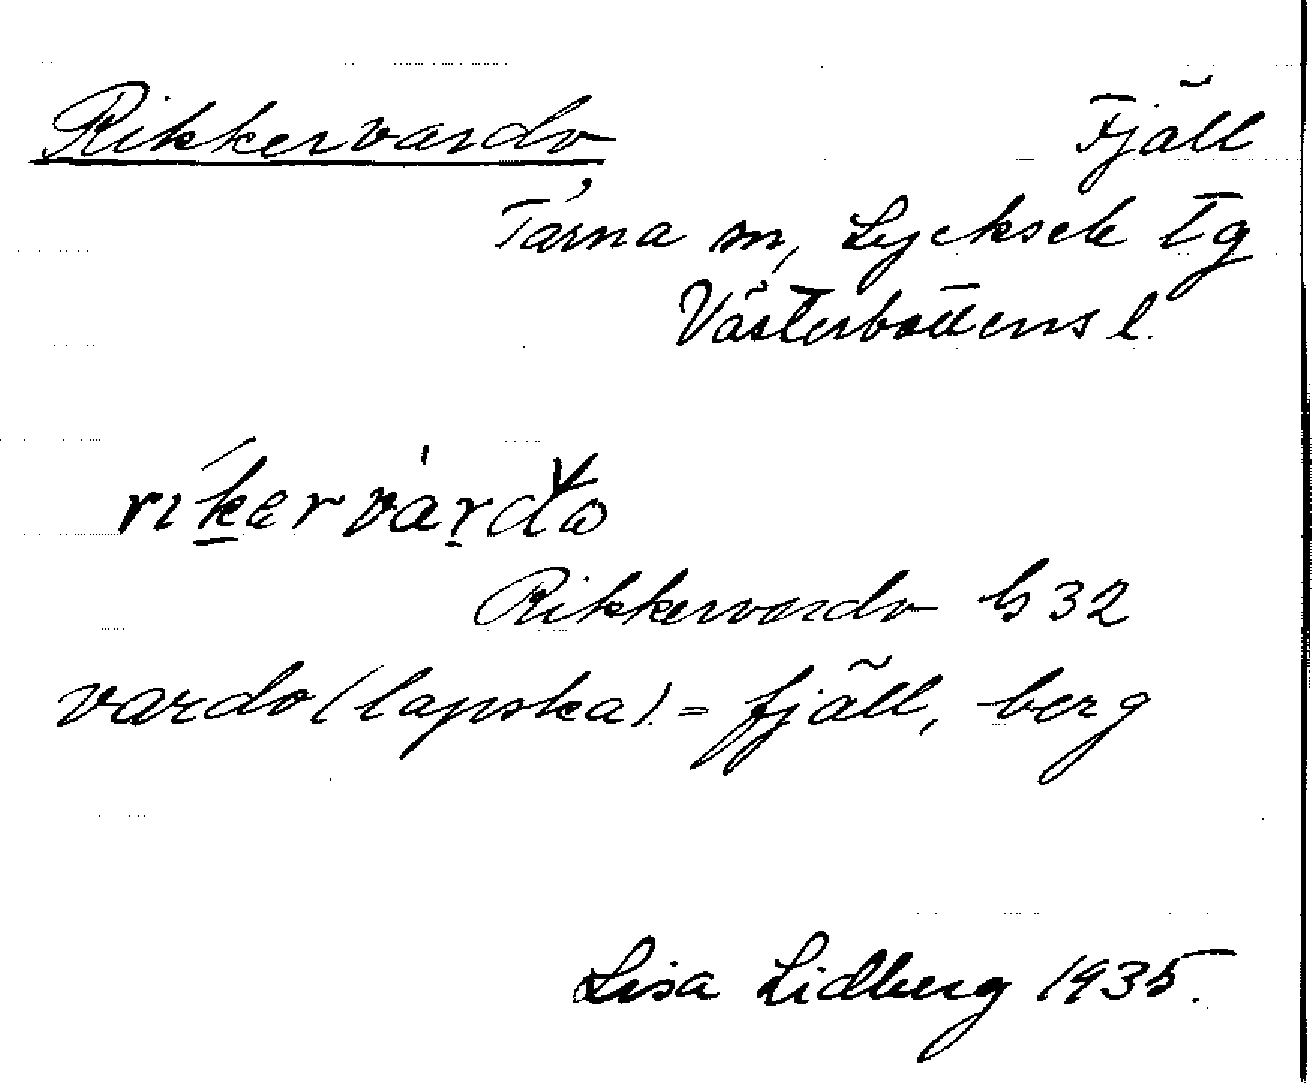 Rikkervardo Fjäll
Tärna sn, Lycksele Tg
Västerbottens l.
Rikkervardo G32
vardo (lapska) = fjäll, berg
Lisa Lidberg 1935.